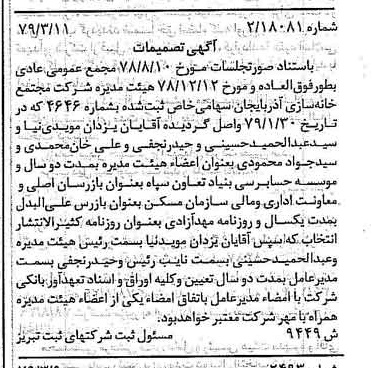 شماره ۲/۱۸۰۸۱ ۷۹/۳/۱۱
آگهی تصمیمات
باستناد صورتجلسات مورخ ۷۸/۸/۱۰ مجمع عمومی عادی
بطور فوق‌العاده و مورخ ۷۸/۱۲/۱۲ هیئت مدیره شرکت مجتمع
خانه‌سازی آذربایجان سهامی خاص ثبت شده بشماره ۴۶۴۶ که در
تاریخ ۷۹/۱/۳۰ واصل گردیده آقایان یزدان مویدی‌نیا و
سیدعبدالحمیدحسینی و حیدرنجفی و علی خان‌محمدی و
سیدجواد محمودی بعنوان اعضاء هیئت مدیره بمدت دو سال و
موسسه حسابرسی بنیاد تعاون سپاه بعنوان بازرسان اصلی و
معاونت اداری ومالی سازمان مسکن بعنوان بازرس علی‌البدل
بمدت یکسال و روزنامه مهدآزادی بعنوان روزنامه کثیرالانتشار
انتخاب که سپس آقایان یزدان مویدنیا بسمت رئیس هیئت مدیره
وعبدالحمیدحسینی بسمت نایب رئیس وحیدرنجفی بسمت
مدیرعامل بمدت دو سال تعیین وکلیه اوراق و اسناد تعهدآور بانکی
شرکت با امضاء مدیرعامل باتفاق امضاء یکی از اعضاء هیئت مدیره
همراه با مهر شرکت معتبر خواهدبود.
ش ۹۴۴۹ مسئول ثبت شرکتهای ثبت تبریز